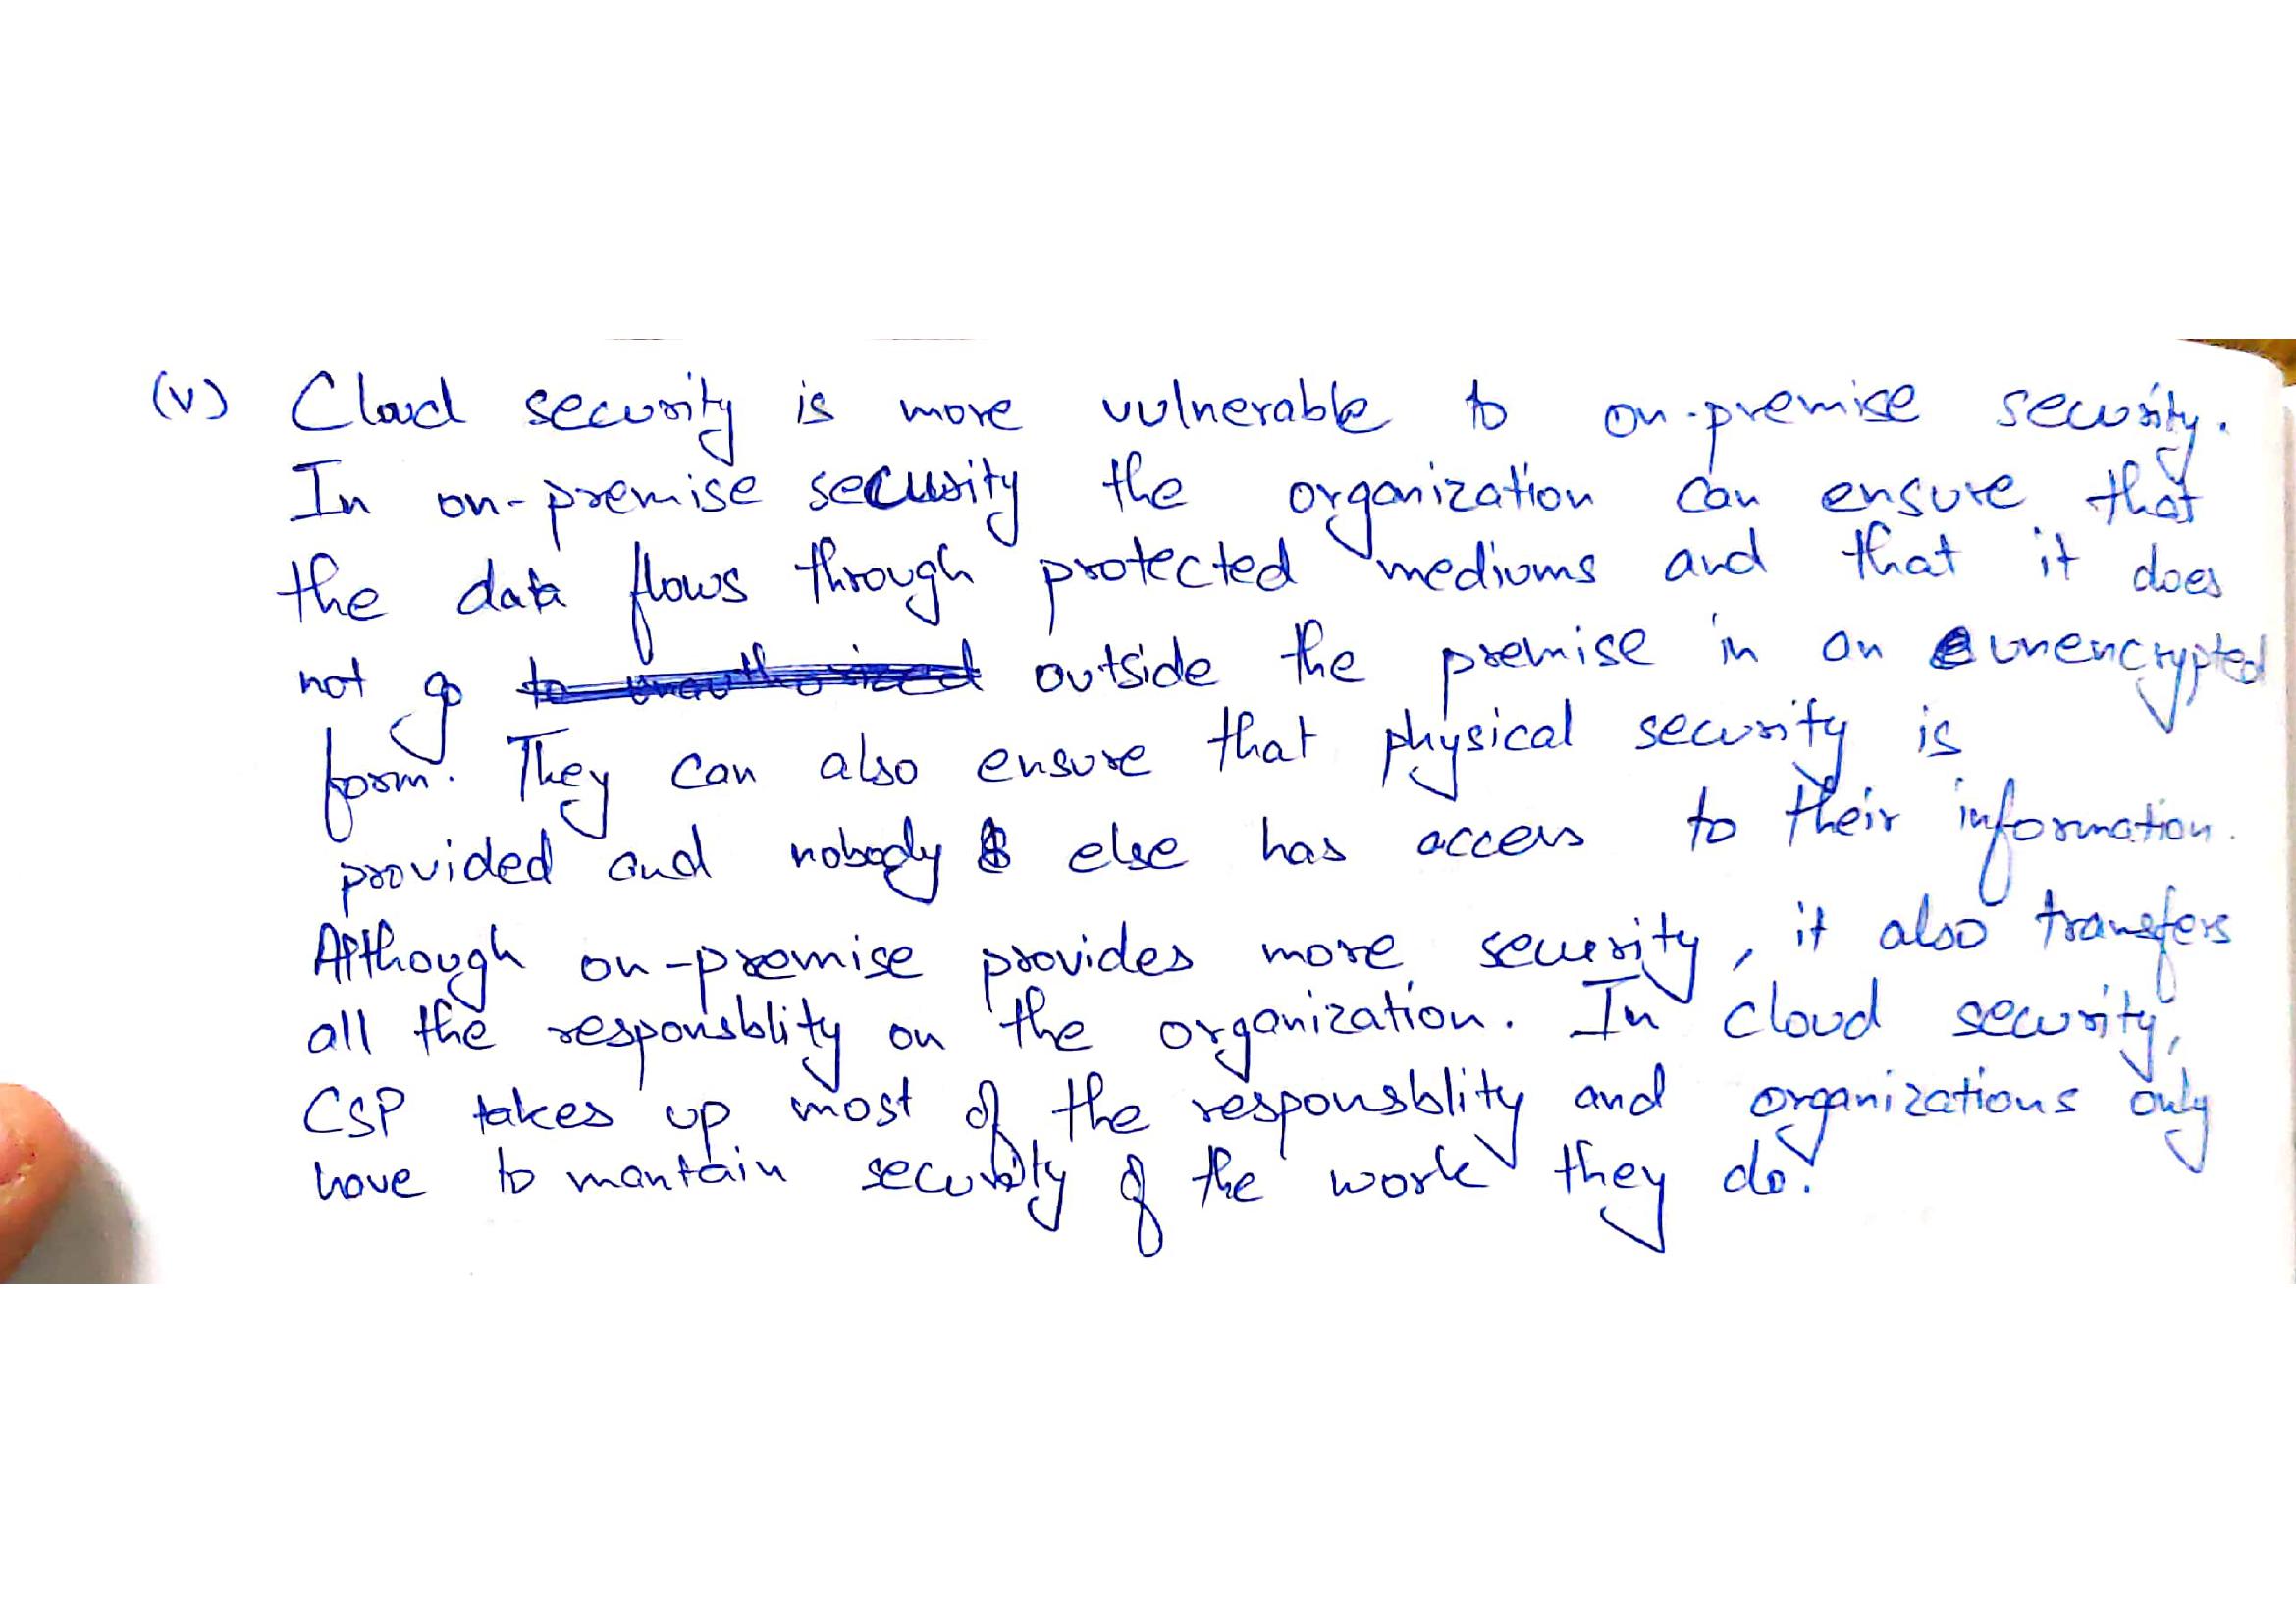 (v) Cloud security is more vulnerable to on-premise security.
In on-premise security the organization can ensure that
the data flows through protected mediums and that it does
not go to unauthorized outside the premise in an unencrypted
form. They can also ensure that physical security is
provided and nobody else has access to their information.
Although on-premise provides more security, it also transfers
all the responsblity on the organization. In cloud security,
CSP takes up most of the responsblity and organizations only
have to mantain security of the work they do.